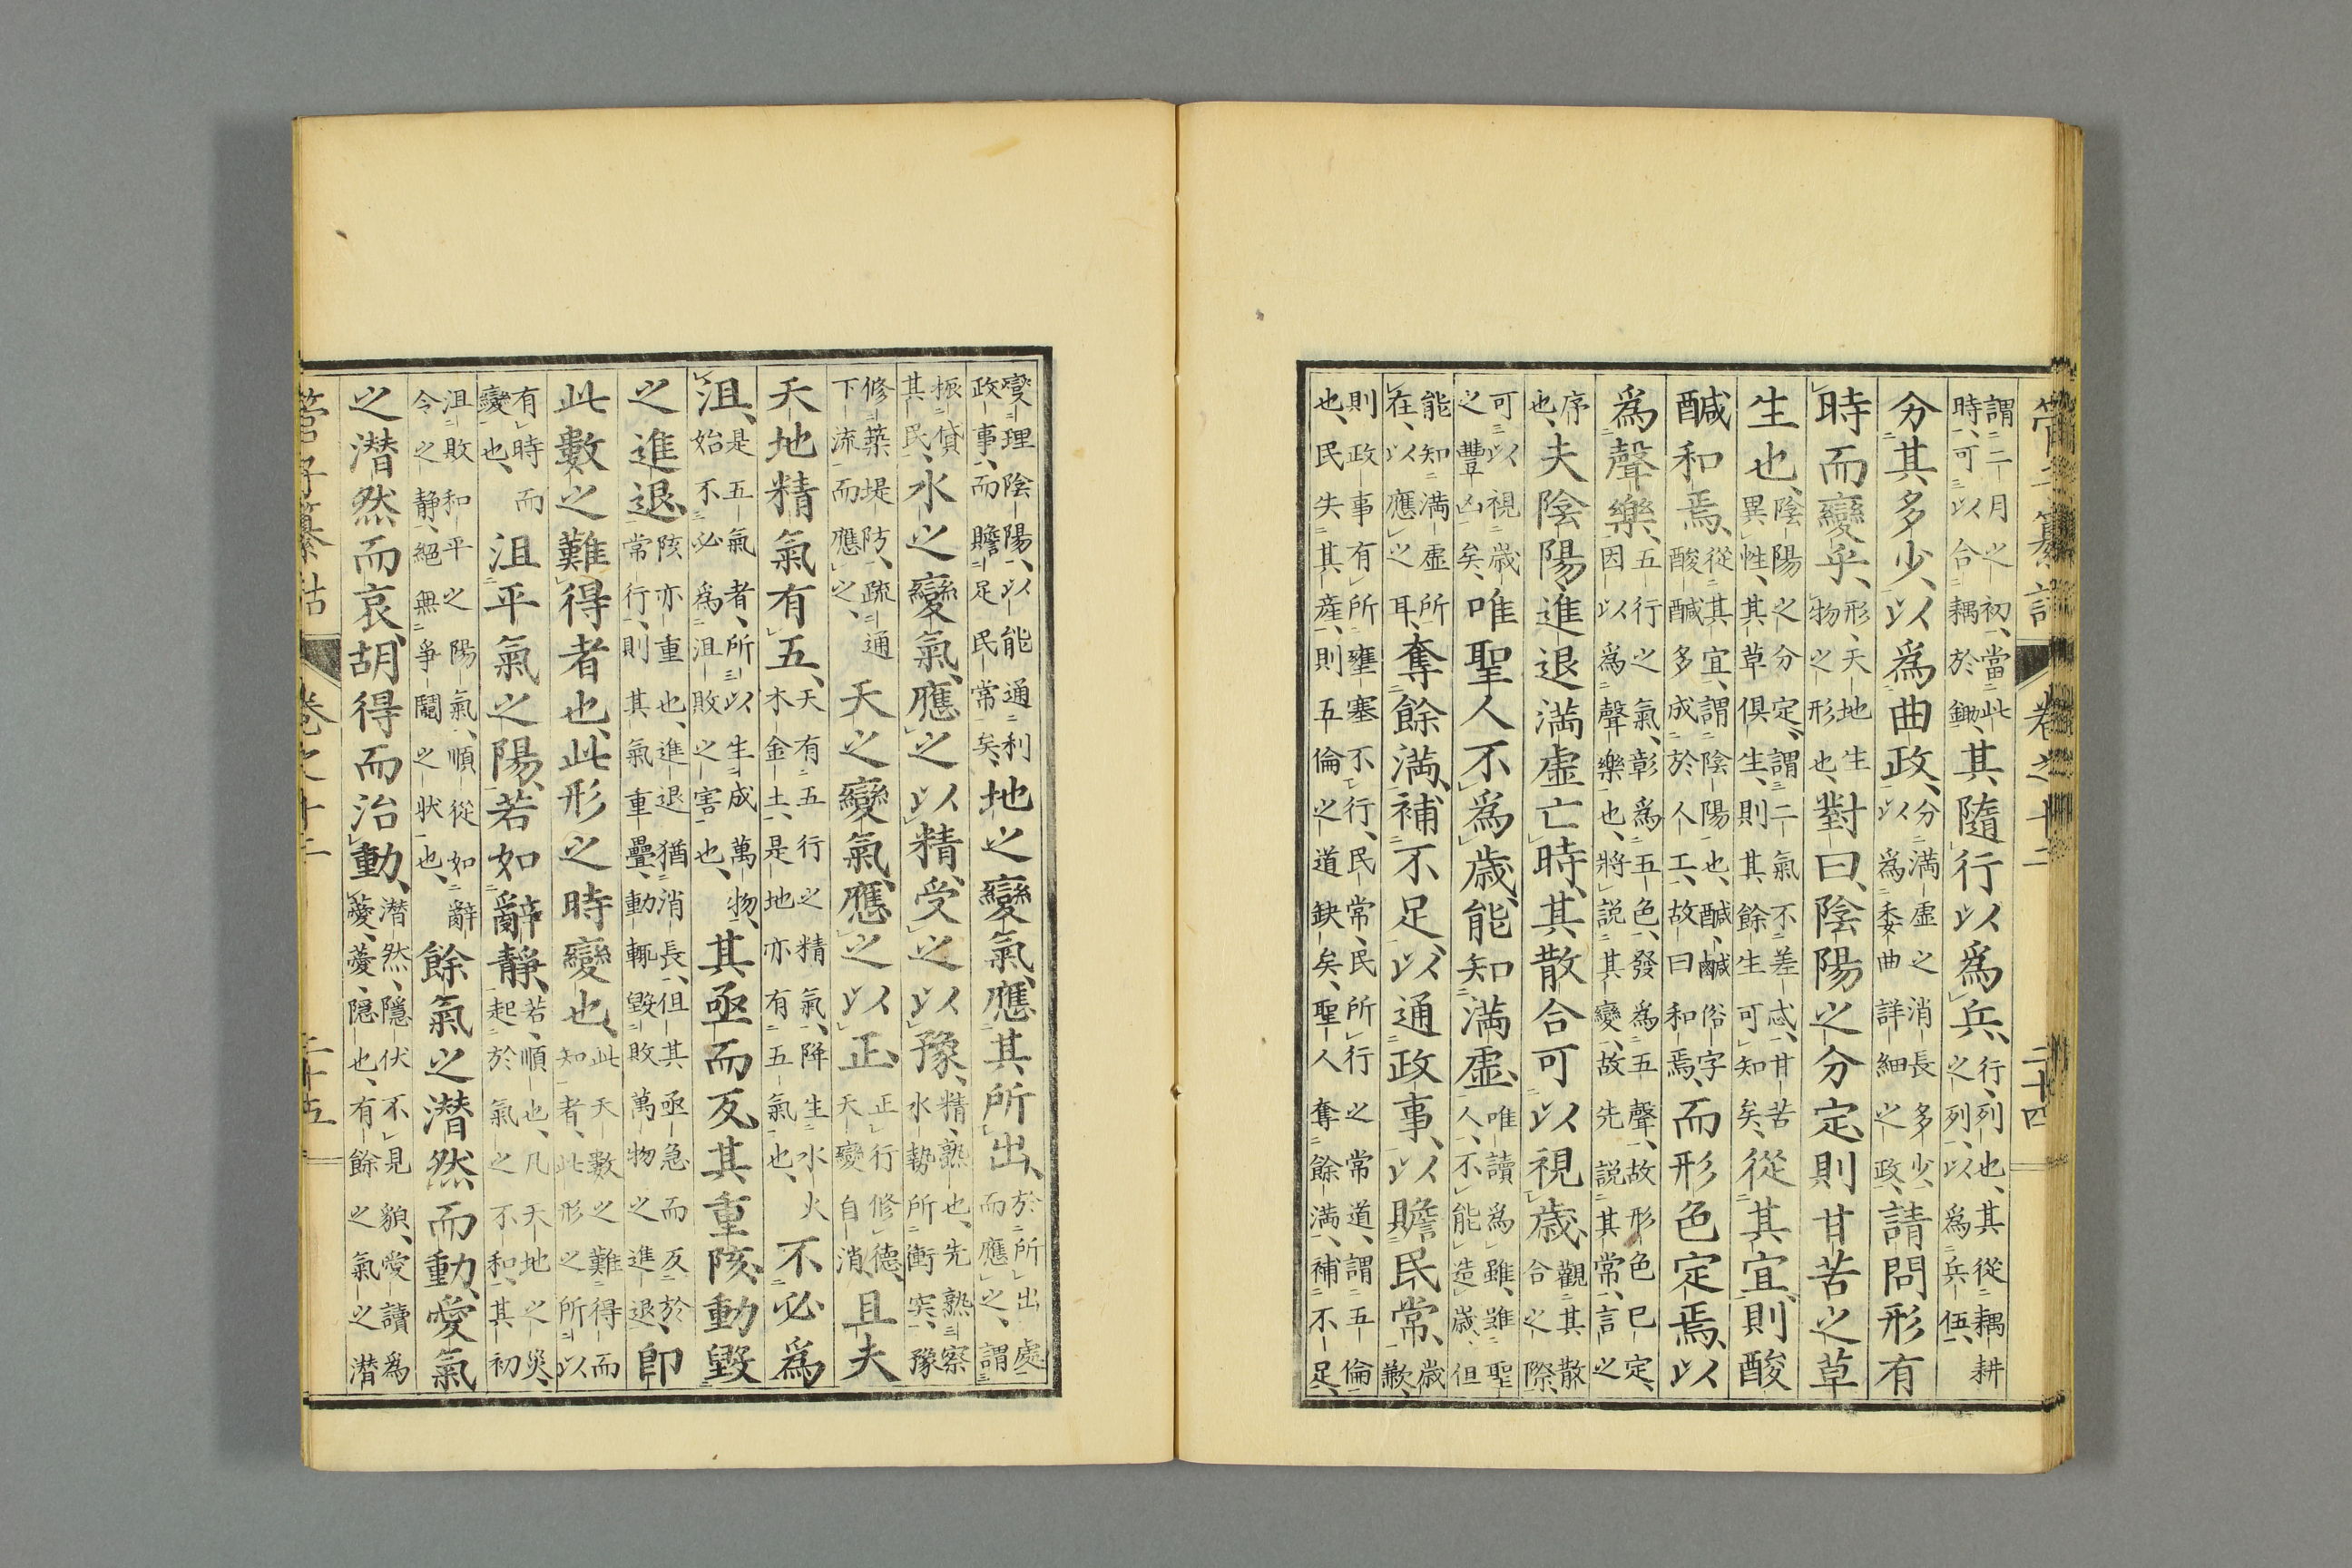 管子纂詁 卷之十二 二十四
謂二月之初、當此時、可以合耦於鋤、其隨行以爲兵、行、列也、其從耦耕之列、以爲兵伍、
分其多少、以爲曲政、分滿虛之消長多少、以爲委曲詳細之政、請問形有
時而變乎、形、天地生物之形也、對曰、陰陽之分定、則甘苦之草
生也、陰陽之分定、謂二氣不差忒、甘苦異性、其草俱生、則其餘生可知矣、從其宜、則酸
鹹和焉、從其宜、謂陰陽也、醎、鹹俗字酸醎多成於人工、故曰和焉、而形色定焉、以
爲聲樂、五行之氣、彰爲五色、發爲五聲、故形色已定、因以爲聲樂也、將說其變、故先說其常、言之
序也、夫陰陽進退滿虛亡時、其散合可以視歲、觀其散合之際、
可以視歲之豐凶矣、唯聖人不爲歲、能知滿虛、唯讀爲雖、雖聖人、不能造歲、但
能知滿虛所在、以應之耳、奪餘滿、補不足、以通政事、以贍民常、歲歉、
則政事有所壅塞不行、民常、民所行之常道、謂五倫也、民失其産、則五倫之道缺矣、聖人奪餘滿、補不足、
變理陰陽、以能通利政事、而贍足民常矣、地之變氣、應其所出、於所出處而應之、謂
振貸其民、水之變氣、應之以精、受之以豫、精、熟也、先熟察水勢所衝突、豫
修築堤防、疏通下流而應之、天之變氣、應之以正、正行修德、天變自消、且夫
天地精氣有五、天有五行之精氣、降生水火木金土、是地亦有五氣也、不必爲
沮、是五氣者、所以生成萬物、始不必爲沮敗之害也、其亟而反、其重陔、動毀
之進退、陔亦重也、進退猶消長、但其亟急而反於常行、則其氣重疊、動輒毀敗萬物之進退、卽
此數之難得者也、此形之時變也、此天數之難得而知者、此形之所以
有時而變也、沮平氣之陽、若如辭靜、若、順也、凡天地之災、起於氣之不和、其初
沮敗和平之陽氣、順從如辭令之靜、絕無爭鬪之狀也、餘氣之潛然而動、愛氣
之潛然而哀、胡得而治動、潛然、隱伏不見貌、愛讀爲薆、薆、隱也、有餘之氣之潛
管子纂詁 卷之十二 二十五